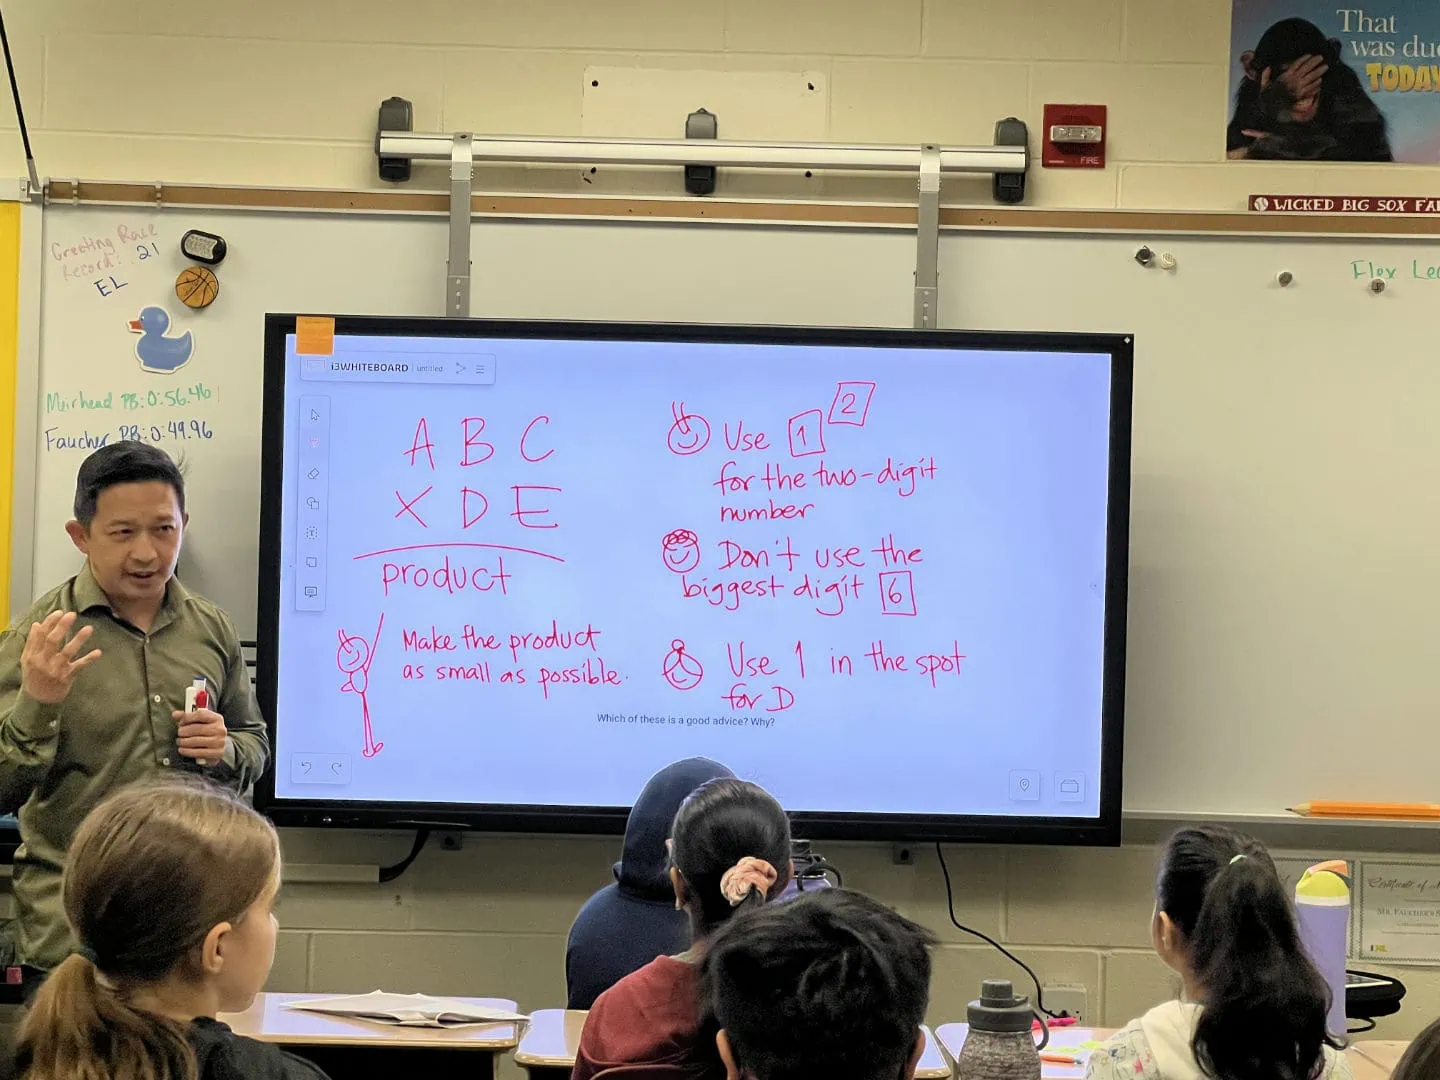 That
was due
TODAY
FIRE
WICKED BIG SOX FA
Greeting Race
Record: 21
EL
Flex Le
Meirhead PB:0:56.46
Faucher PB:0:49.96
i3WHITEBOARD untitled
A B C
X D E
product
Make the product
as small as possible.
Use 1 2
for the two-digit
number
Don't use the
biggest digit 6
Use 1 in the spot
for D
Which of these is a good advice? Why?
Certificate of
MR. FAUCHER'S